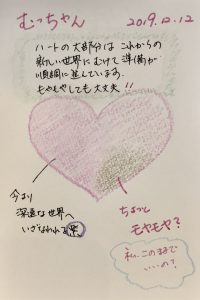 むっちゃん
2019.12.12
ハートの大部分は これからの
新しい世界にむけて 準備が
順調に 進んでいます。
モヤモヤしても大丈夫!!
今より
深遠な世界へ
いざなわれる
ちょっと
モヤモヤ?
私、このままで
いいの?